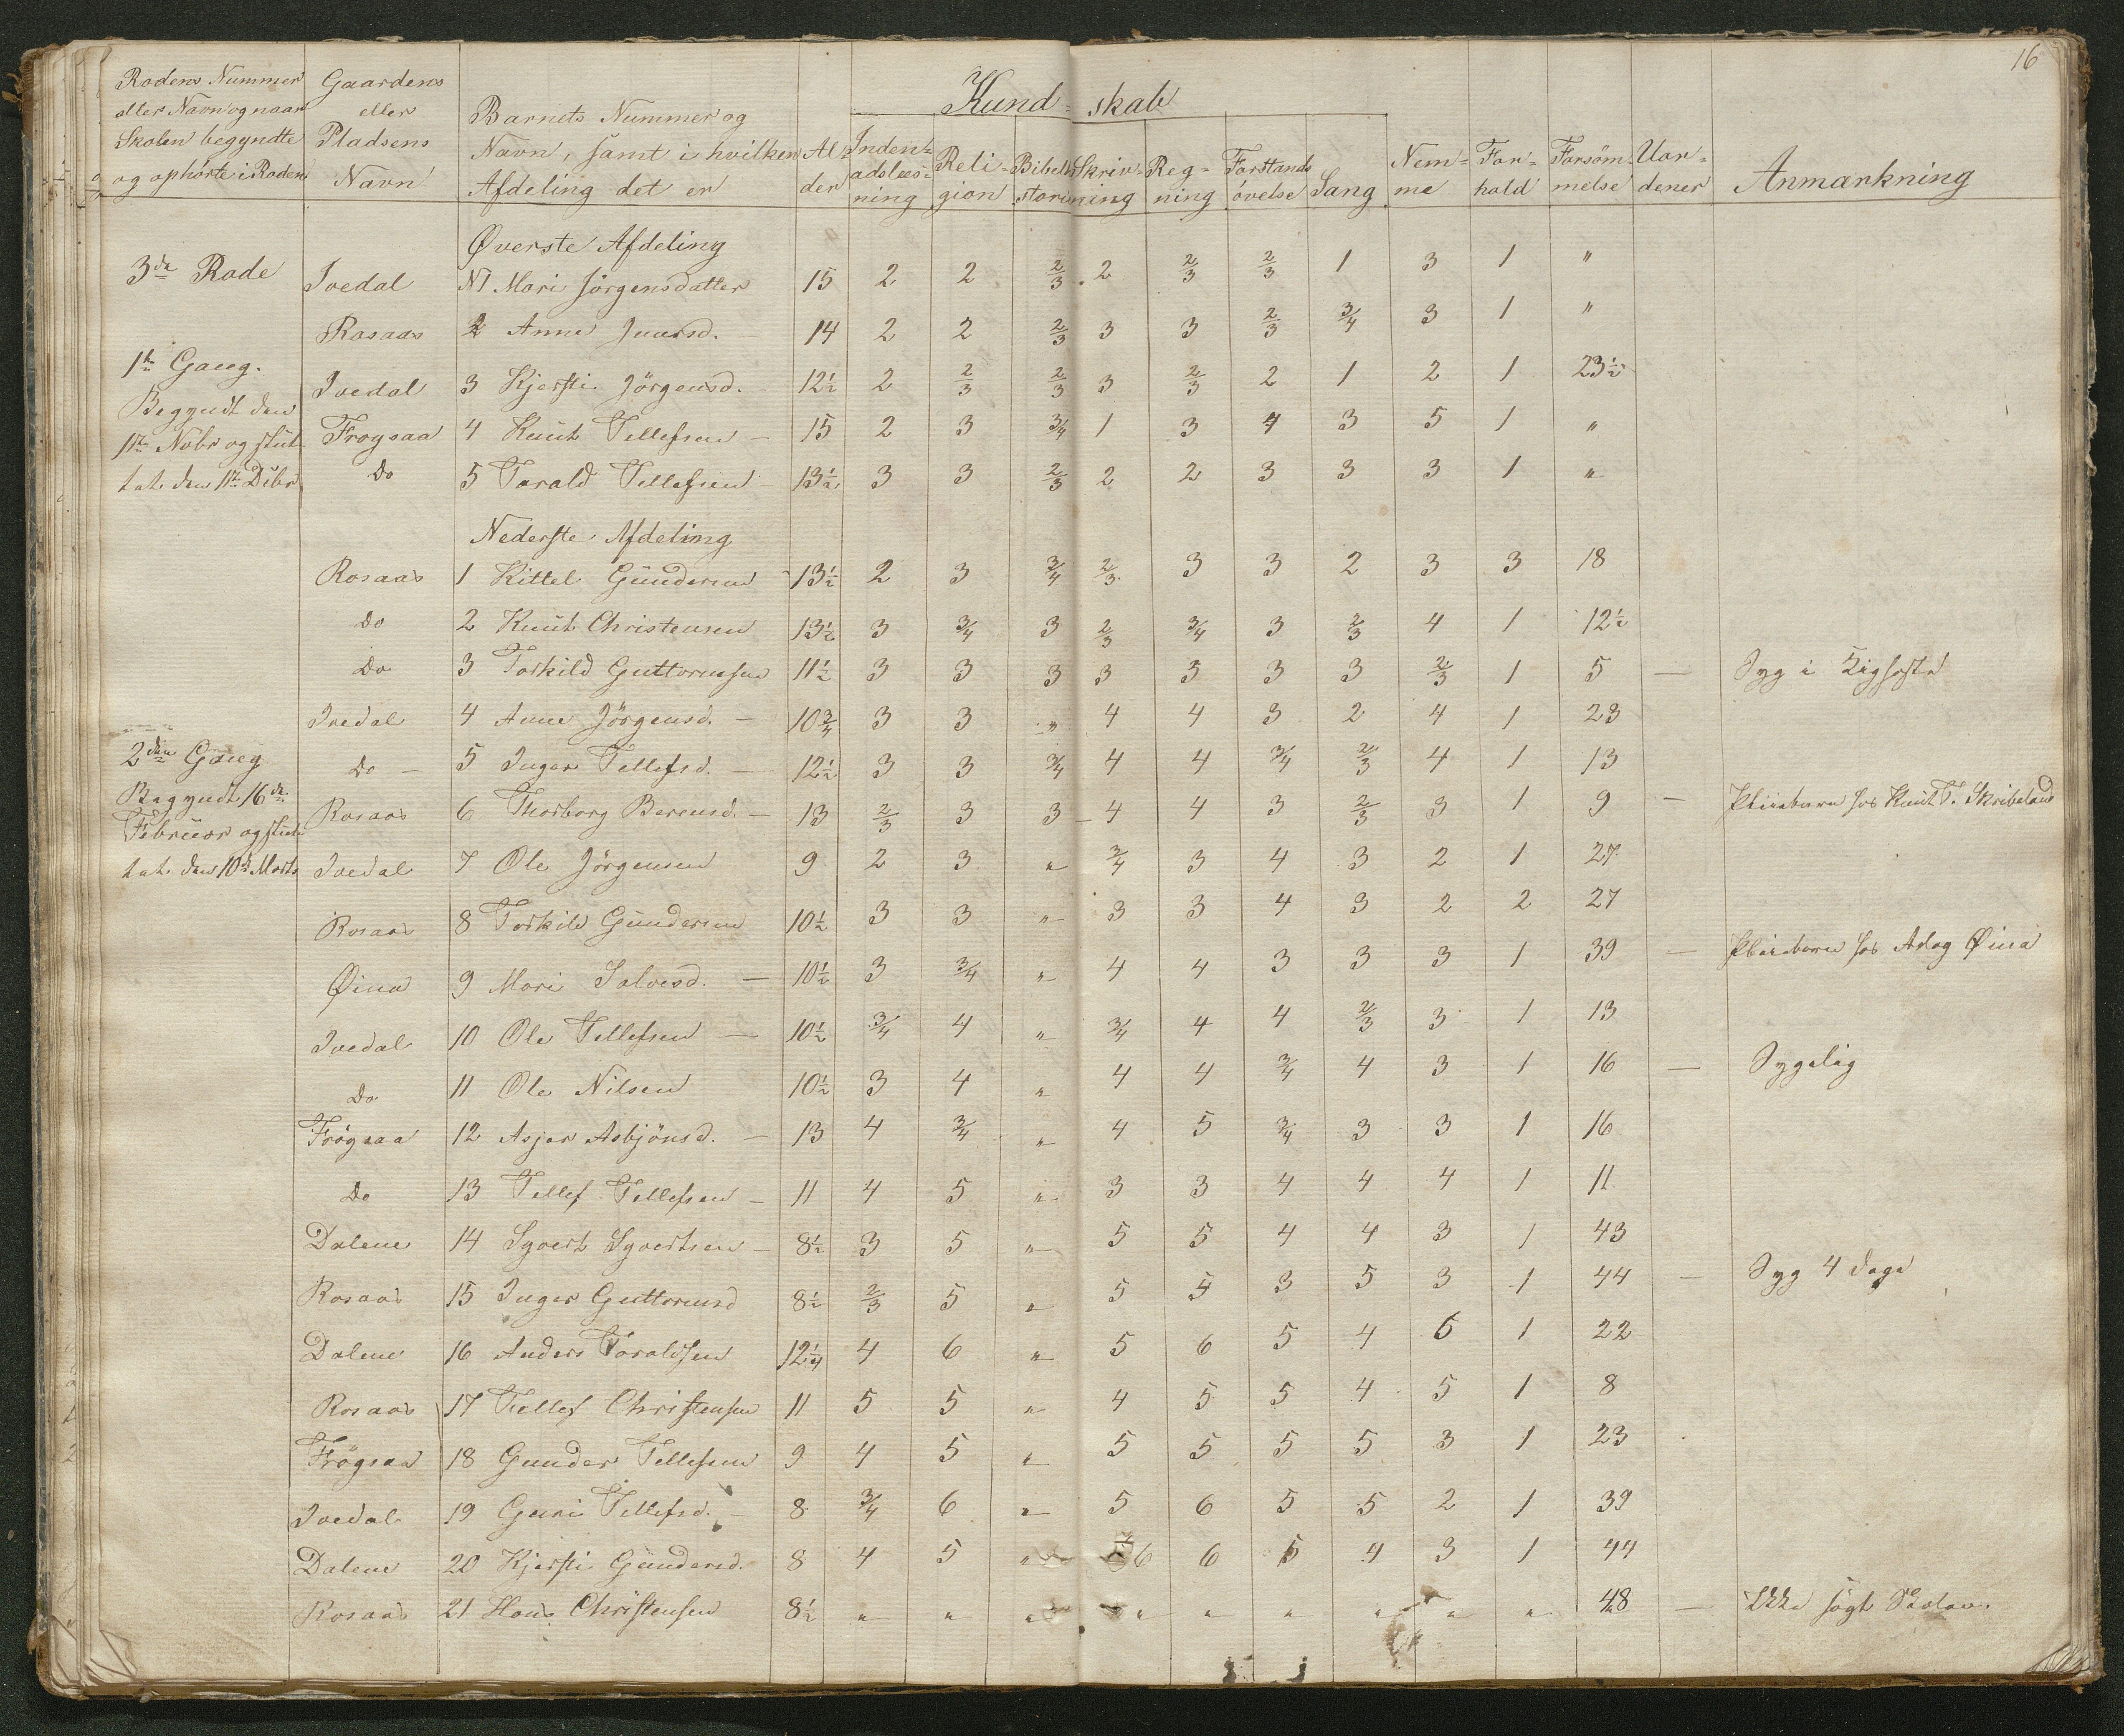 16
Rodens Nummer eller Navn og naar Skolen begyndte og ophørte i Roden
Gaardens eller Pladsens Navn
Barnets Nummer og Navn, samt i hvilken Afdeling det er
Al-der
Kund-skab
Inden-adslæs-ning
Reli-gion
Bibel-storie
Skriv-ning
Reg-ning
Forstands øvelse
Sang
Nem-me
For-hold
Forsøm-melse
Uor-dener
Anmærkning
Øverste Afdeling
3de Rode Ivedal N1 Mari Jörgensdatter 15 2 2 2/3 2 2/3 2/3 1 3 1 "
Rosaas 2 Anne 14 2 2 2/3 3 3 2/3 3/4 3 1 "
1ste Gang.
Ivedal 3 Kjersti Jörgensd. 12½ 2 2/3 2/3 3 2/3 2 1 2 1 23½
Begyndt den
11te Nobr og slut-
Frøysaa 4 Knut Tellefsen 15 2 3 3/4 1 3 4 3 5 1 "
tet den 11te Dcbr
Do 5 Torald Tellefsen 13½ 3 3 2/3 2 2 3 3 3 1 "
Nederste Afdeling
Rosaas 1 Kittel Gundersen 13½ 2 3 3/4 2/3 3 3 2 3 3 18
Do 2 Knut Christensen 13½ 3 3/4 3 2/3 3/4 3 2/3 4 1 12½
Do 3 Torkild Guttormsen 11½ 3 3 3 3 3 3 3 2/3 1 5 — Syg i Kighoste
Ivedal 4 Anne Jörgensd. 10¾ 3 3 " 4 4 3 2 4 1 23
2den Gang
Do 5 Inger Tellefsd. 12½ 3 3 3/4 4 4 3/4 2/3 4 1 13
Begyndt 16de
Rosaas 6 Thorborg Berensd. 13 2/3 3 3 4 4 3 2/3 3 1 9 — Pleiebarn hos Knut T. Skribeland
Februar og slut-
tet den 10de Marts
Ivedal 7 Ole Jörgensen 9 2 3 " 3/4 3 4 3 2 1 27
Rosaas 8 Torkild Gundersen 10½ 3 3 " 3 3 4 3 2 2 27
Øina 9 Mari Salvesd. 10½ 3 3/4 " 4 4 3 3 3 1 39 — Pleiebarn hos Øina
Ivedal 10 Ole Tellefsen 10½ 3/4 4 " 3/4 4 4 2/3 3 1 13
Do 11 Ole Nilsen 10½ 3 4 " 4 4 3/4 4 3 1 16 — Sygelig
Frøgsaa 12 Asjer Asbjönsd. 13 4 3/4 " 4 5 3/4 3 3 1 16
Do 13 Tellef Tellefsen 11 4 5 " 3 3 4 4 4 1 11
Dalene 14 Sgvert Sgvertsen 8½ 3 5 " 5 5 4 4 3 1 43
Rosaas 15 Inger Guttormsd 8½ 2/3 5 " 5 5 3 5 3 1 44 — Syg 4 dage
Dalene 16 Anders Toraldsen 12¼ 4 6 " 5 6 5 4 5 1 22
Rosaas 17 Tellef Christensen 11 5 5 " 4 5 5 4 5 1 8
Frøgsaa 18 Gunder Tellefsen 9 4 5 " 5 5 5 5 3 1 23
Ivedal 19 Guri Tellefsd. 8 3/4 6 " 5 6 5 5 2 1 39
Dalene 20 Kjersti Gundersd. 8 4 5 " 6 6 5 4 3 1 44
Rosaas 21 Hans Christensen 8½ " " " " " " " " " 48 — Ikke søgt Skolen.